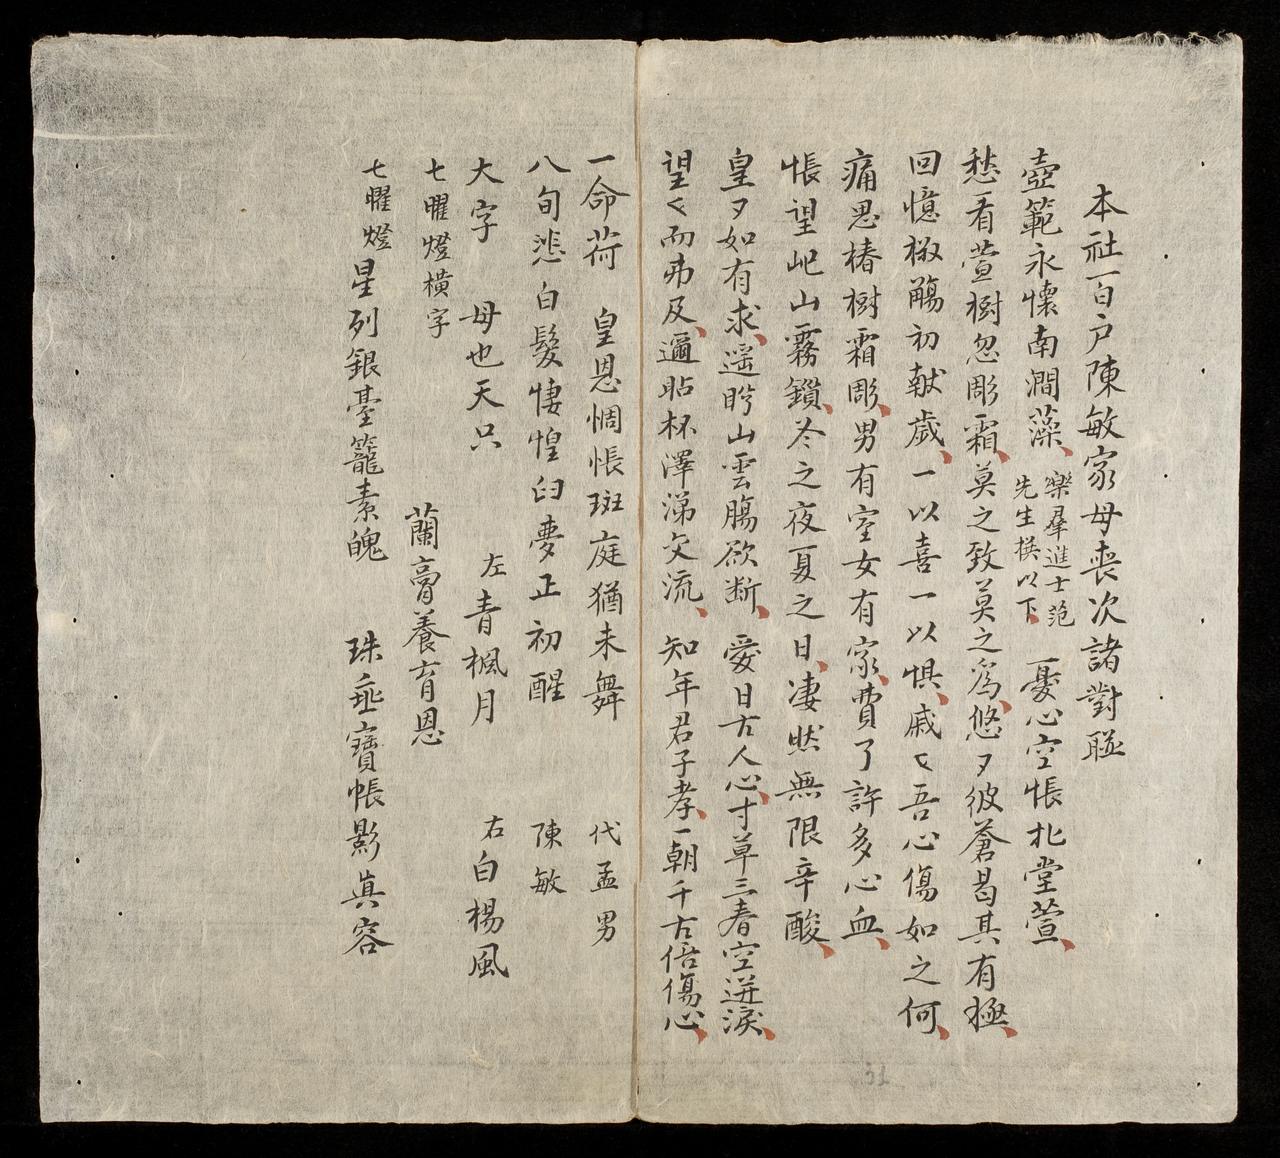 本社一百戶陳敏家母喪次諸對聯
壼範永懷南澗藻、樂羣進士范先生撰以下 憂心空悵北堂萱、
愁看萱樹忽彫霜、莫之致莫之爲、悠々彼蒼曷其有極、
回憶椒觴初献歲、一以喜一以惧、戚々吾心傷如之何、
痛思椿樹霜彫、男有室女有家、費了許多心血、
悵望屺山霧鎖、冬之夜夏之日、凄然無限辛酸、
皇々如有求、遥盻山雲膓欲断、愛日古人心、寸草三春空迸淚、
望々而弗及、邇貼杯澤涕交流、知年君子孝、一朝千古倍傷心、
一命荷 皇恩惆悵斑庭猶未舞 代孟男
八旬悲白髮悽惶臼夢正初醒 陳敏
大字 母也天只 左青楓月 右白楊風
七曜燈橫字 蘭膏養育恩
七曜燈星列銀臺籠素魄 珠垂寶帳影眞容
31